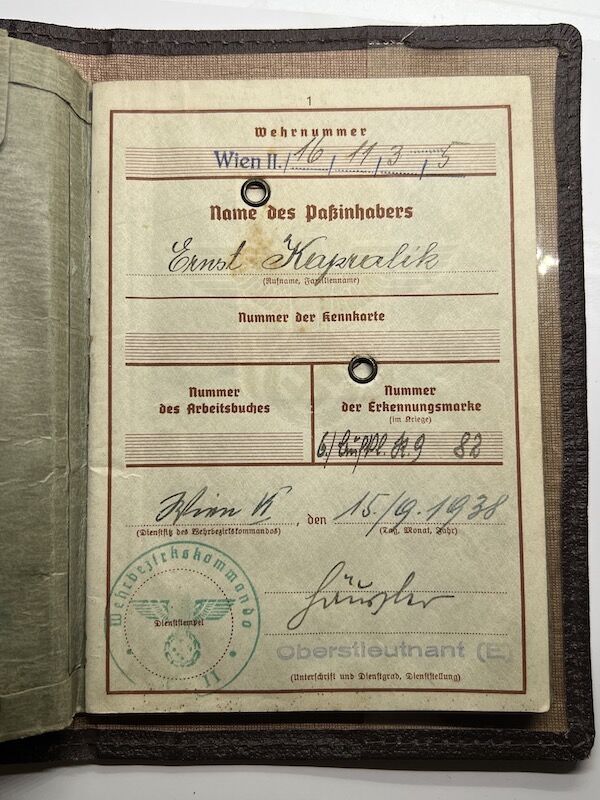 1
Wehrnummer
Wien II./16/11/3/5
Name des Paßinhabers
Ernst Kapralik
(Rufname, Familienname)
Nummer der Kennkarte
Nummer
des Arbeitsbuches
Nummer
der Erkennungsmarke
(im Kriege)
82
Wien II, den 15./9. 1938
(Dienstsitz des Wehrbezirkskommandos) (Tag, Monat, Jahr)
Wehrbezirkskommando
Dienststempel
II
Oberstleutnant (E)
(Unterschrift und Dienstgrad, Dienststellung)